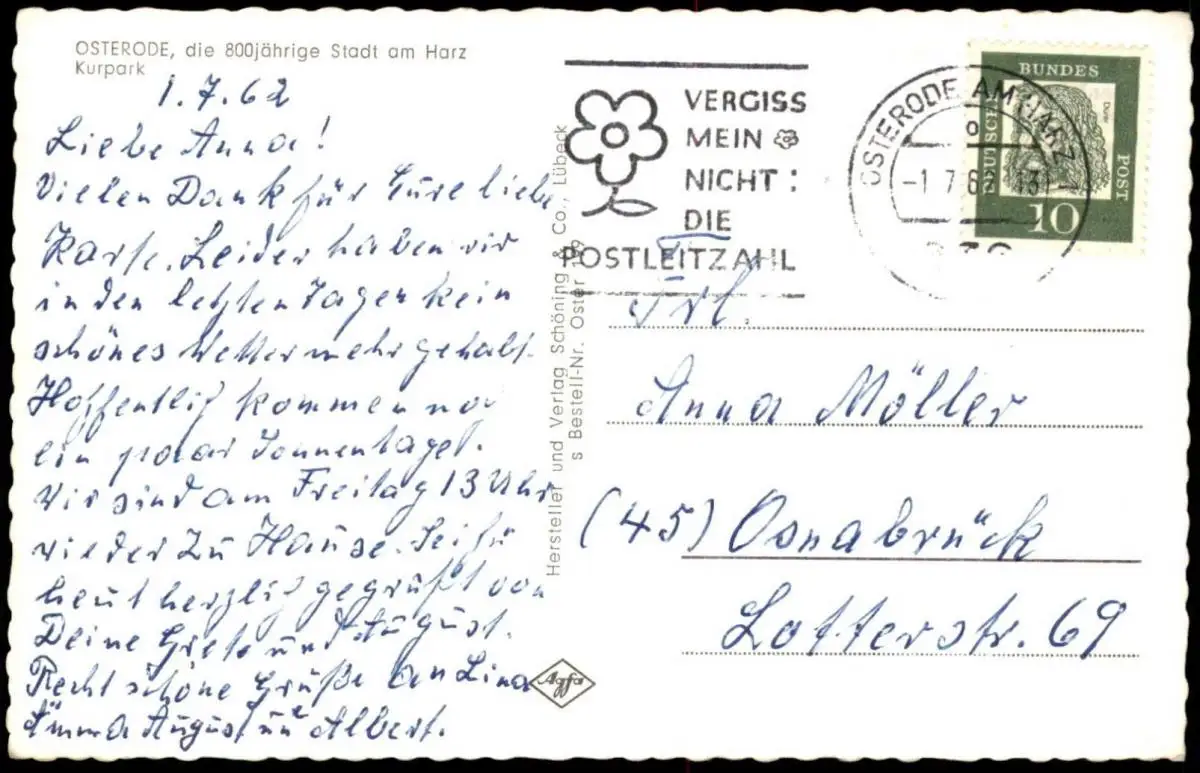 OSTERODE, die 800jährige Stadt am Harz
Kurpark
1.7.62
Liebe Anna!
Vielen Dank für Eure liebe
Karte. Leider haben wir
in den letzten Tagen kein
schönes Wetter mehr gehabt.
Hoffentlich kommen noch
ein paar Sonnentage.
Wir sind am Freitag 13 Uhr
wieder zu Hause. Sei für
heut herzlich gegrüßt von
Deine Grete und August.
Recht schöne Grüße an Lina
August u Albert.
Hersteller und Verlag Schöning & Co., Lübeck
s Bestell-Nr. Oster 199
Agfa
VERGISS
MEIN
NICHT:
DIE
POSTLEITZAHL
OSTERODE AM HARZ
-1.7.6 13
DEUTSCHE
BUNDES
POST
Dürer
10
Frl.
Anna Möller
(45) Osnabrück
Lotterstr. 69